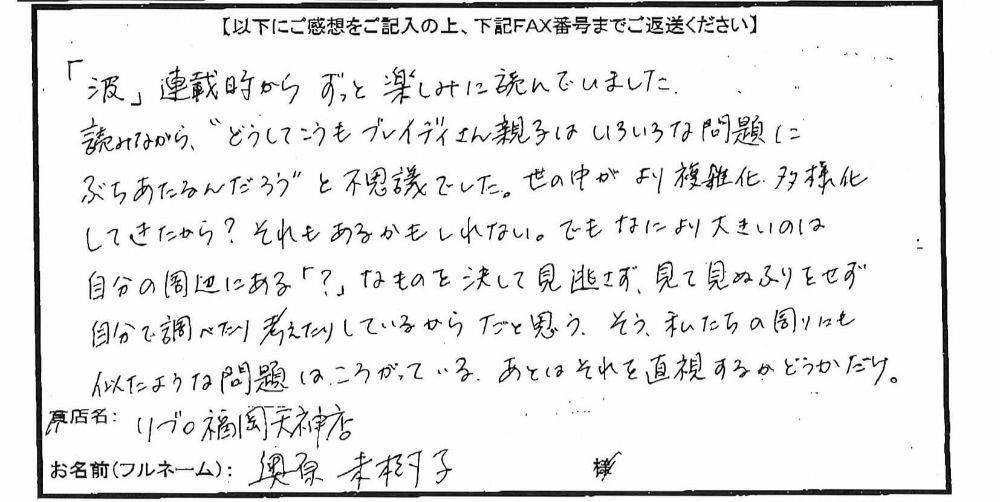 【以下にご感想をご記入の上、下記FAX番号までご返送ください】
「波」連載時から ずっと 楽しみに読んでいました.
読みながら、“どうしてこうも ブレイディさん親子は いろいろな問題に
ぶちあたるんだろう”と 不思議でした。世の中が より複雑化.多様化
してきたから? それもあるかもしれない。でもなにより大きいのは
自分の周辺にある「?」なものを決して見逃さず、見て見ぬふりをせず
自分で調べたり考えたりしているからだと思う. そう、私たちの周りにも
似たような問題は、ころがっている. あとはそれを直視するかどうかだけ。
貴店名: リブロ福岡天神店
お名前(フルネーム): 奥原 未樹子 様